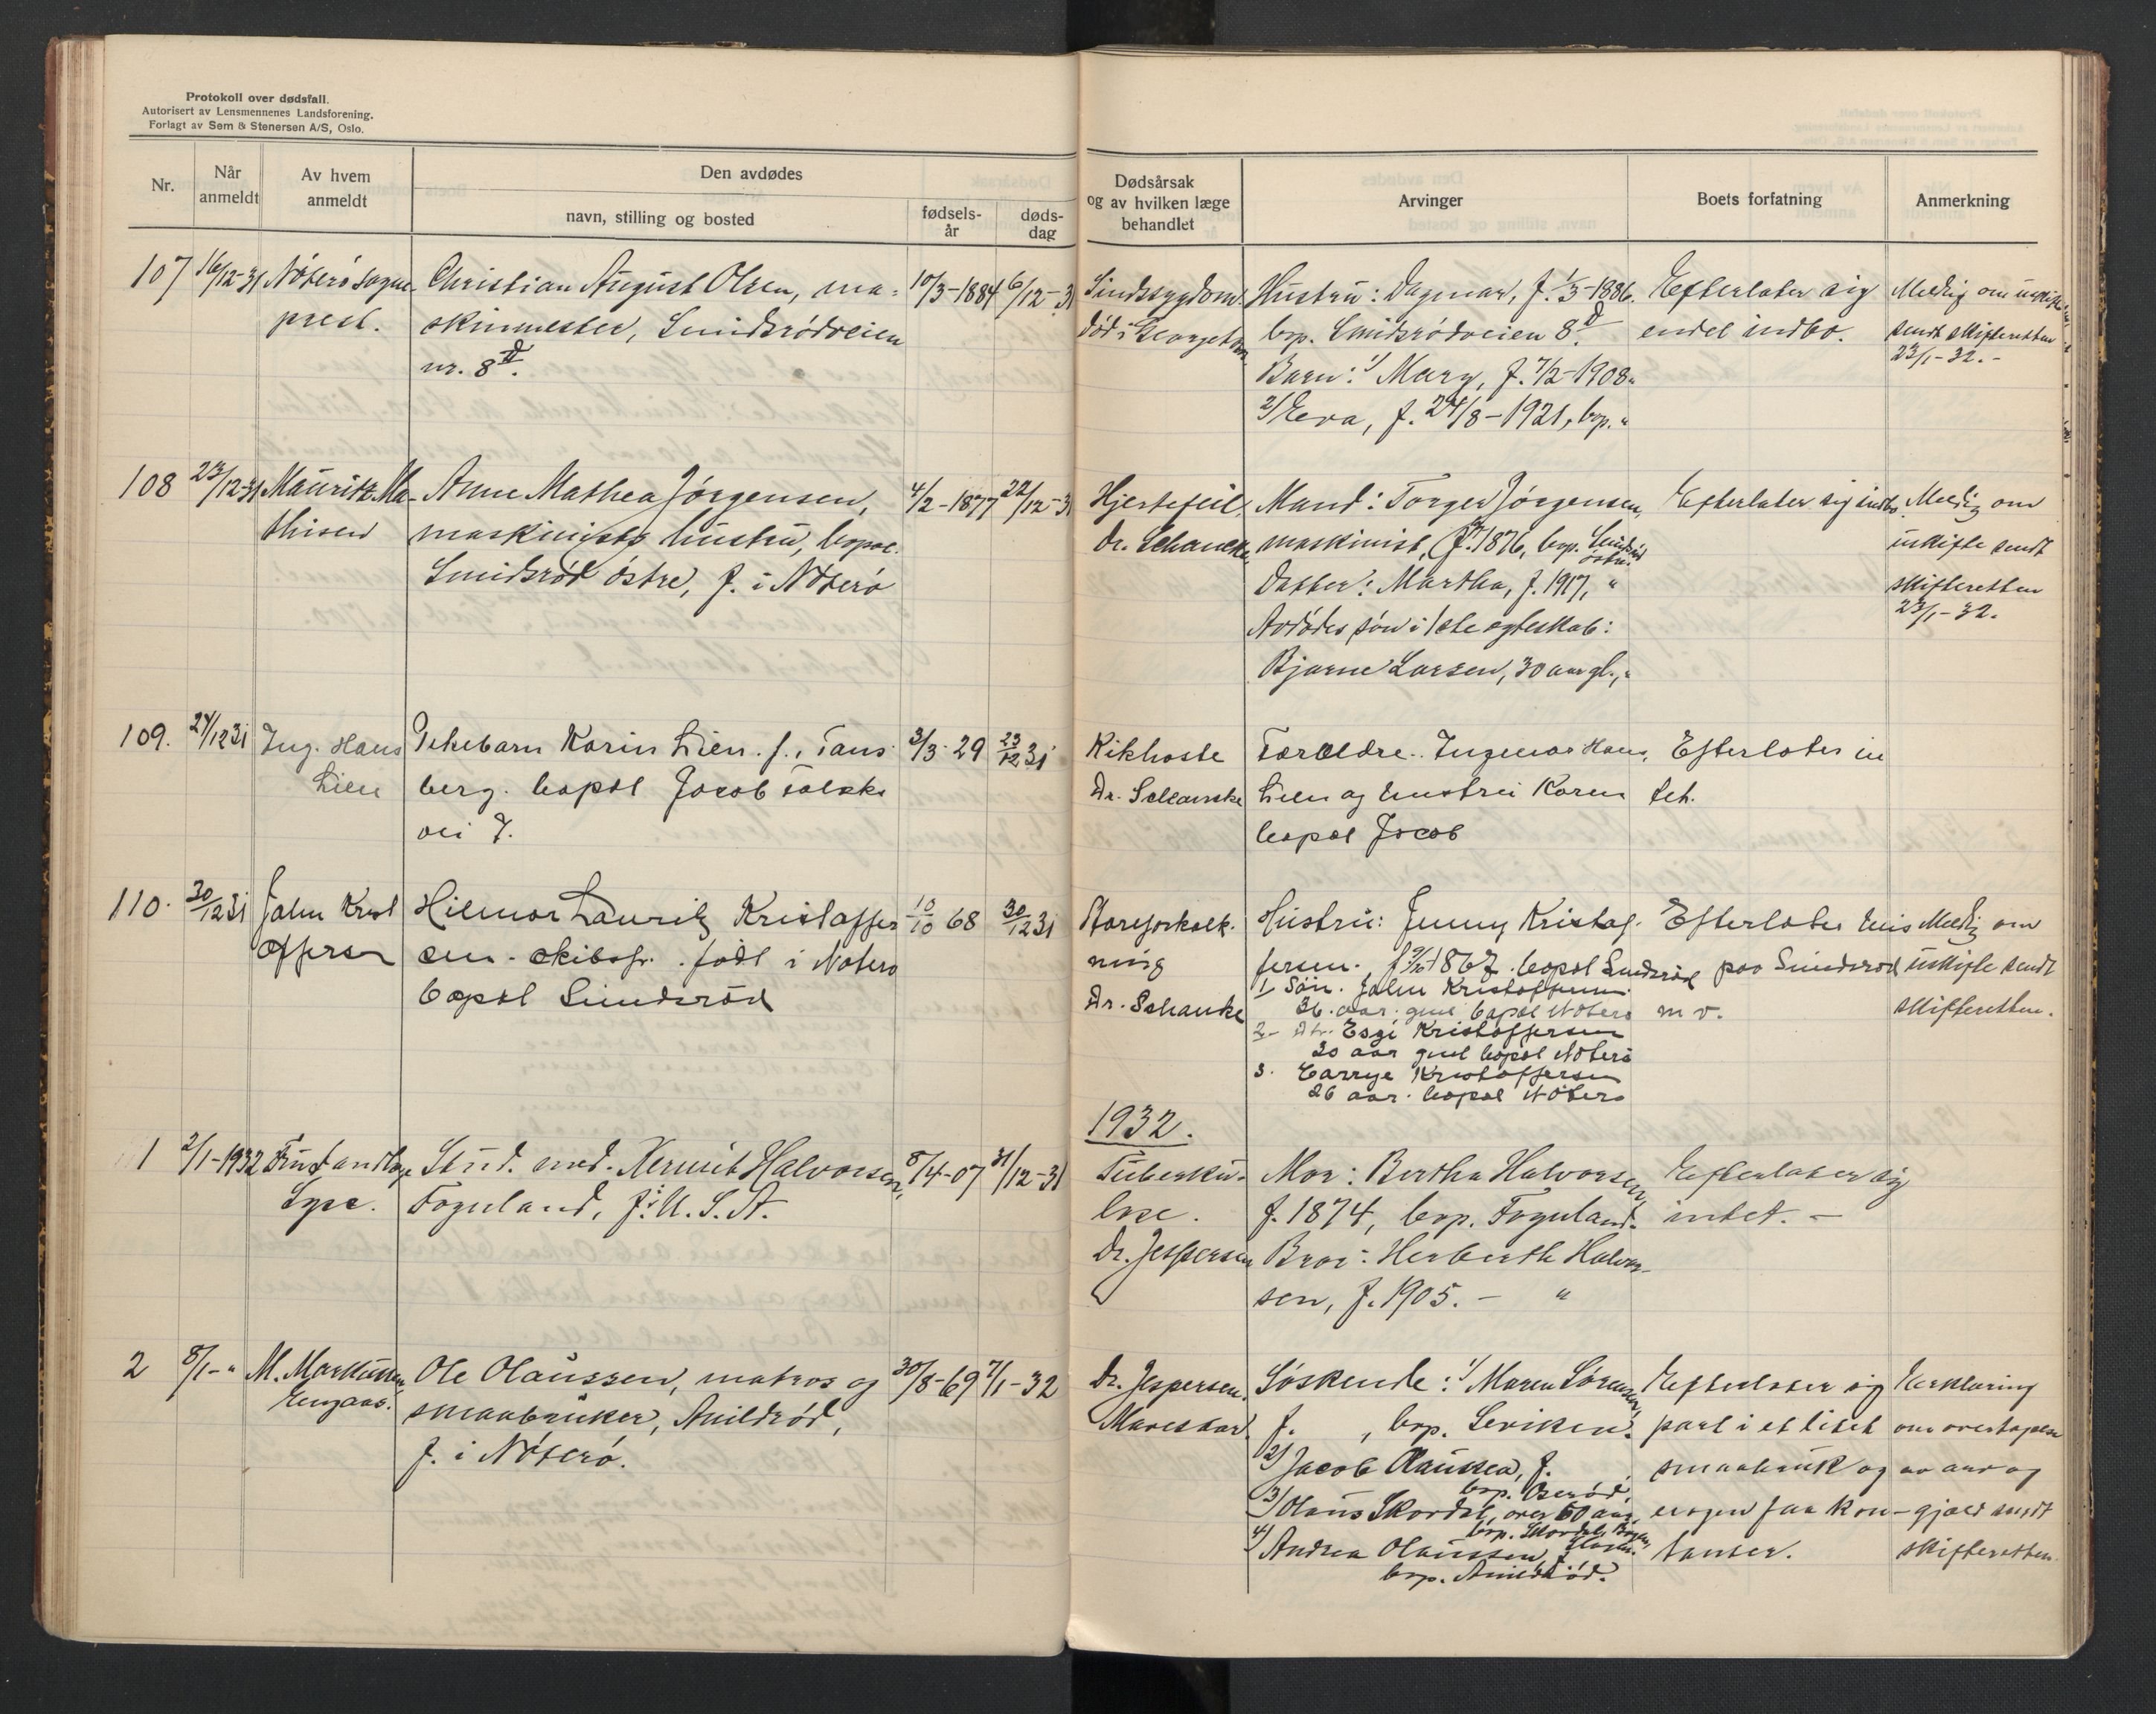 Protokoll over dødsfall.
Autorisert av Lensmennenes Landsforening.
Forlagt av Sem & Stenersen A/S, Oslo.
Nr.
Når anmeldt
Av hvem anmeldt
Den avdødes
navn, stilling og bosted
fødsels-år
døds-dag
Dødsårsak og av hvilken læge behandlet
Arvinger
Boets forfatning
Anmerkning
107 16/12-31 Nøterø sogne-
prest.
Christian August Olsen, ma-
skinmester, Smidsrødveien
nr. 8
10/3-1884 6/12-31
Sindssygdom.
død i Georgetown
Hustru: Dagmar, f. 1/3-1886.
bop. Smidsrødveien 8
Barn: 1/ Mary, f. 7/2-1908 "
2/ Eva, f. 24/8-1921, bop. "
Efterlater sig
endel indbo.
Meldg om uskifte
sendt skifteretten
23/1-32.-
108 23/12-31 Mauritz Ma-
thisen
Anne Mathea Jørgensen,
maskinists hustru, bopæl
Smidsrød østre, f. i Nøterø
4/2-1877 22/12-31
Hjertefeil,
Dr. Schancke
Mand: Torger Jørgensen,
maskinist, f. 1876, bop. Smidsrød østre.
Datter: Martha, f. 1917, "
Avdødes søn i 1ste egteskab:
Bjarne Larsen, 30 aar gl., "
Efterlater sig indbo.
Meldg om
uskifte sendt
skifteretten
23/1-32.
109. 24/12 31 Ing. Hans
Lien
Pikebarn Karin Lien. f. i Tøns
berg. bopæl Jacob
vei 7.
3/3-29 23/12 31
Kikhoste
Dr. Schanke
Foreldre. Ingeniør Hans
Lien og hustru Karen
bopæl Jacob
Efterlater in
tet.
110. 30/12 31 John Krist
offersen
Hilmar Lauritz Kristoffer
sen. skibsfr. født i Nøterø
bopæl Smidsrød
10/10 68 30/12 31
Aareforkalk.
ning
Dr. Schanke
Hustru: Jenny Kristof.
fersen. 1867. bopæl Smidsrød
1 Søn. John Kristoffersen
36 aar. gml bopæl Nøterø
2- Dtr. Esgi Kristoffersen
30 aar gml bopæl Nøterø
3. Carrye Kristoffersen
26 aar. bopæl Nøterø
Efterlater hus
paa Smidsrød
m v.
Meldg om
uskifte sendt
skifteretten.
1932.
1 2/1-1932
Lyse.
Stud. med. Kermit Halvorsen,
Foguland, f. i U.S.A.
8/4-07 31/12-31
Tuberku-
lose.
Dr. Jespersen
Mor: Bertha Halvorsen,
f. 1874, bop. Foguland.
Bror: Herberth Halvor-
sen, f. 1905. - "
Efterlater sig
intet. -
2 8/1-" M. Markussen,
Engaas.
Ole Olaussen, matros og
smaabruker, Anildrød,
f. i Nøterø.
30/8-69 7/1-32
Dr. Jespersen.
Søskende: 1/ Maren Sørensen,
f. , bop. Leviken.
2/ Jacob Olaussen, f. ,
bop. Oserød.
3/ Olaus Skordal, over 60 aar,
bop. Skordal,
4/ Andrea Olaussen, f.
bop. Anildrød.
Efterlater sig
part i et litet
smaabruk og
nogen faa kon-
tanter.
Erklæring
om overtagelse
av arv og
gjæld sendt
skifteretten.